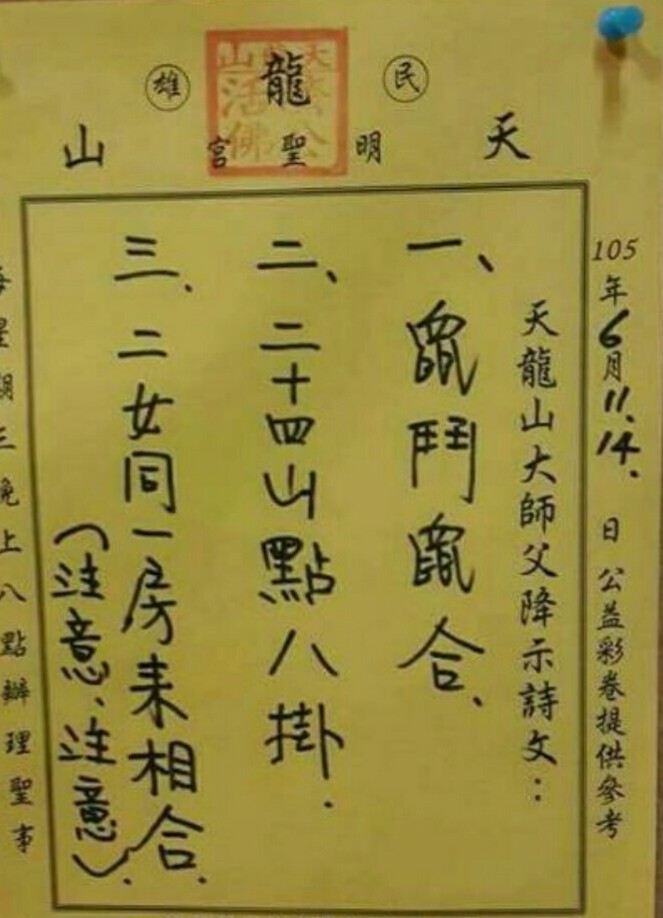 民 龍 雄
天 明 聖 宮 山
天龍山
濟公
活佛
105年6月11.14.日公益彩卷提供參考
天龍山大師父降示詩文：
一、鼠鬥鼠合.
二、二十四山點八掛.
三、二女同一房来相合.
(注意、注意).
每星期三晚上八點辦理聖事